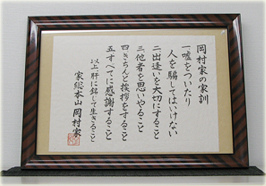 岡村家の家訓
一嘘をついたり
人を騙してはいけない
二出逢いを大切にすること
三他者を思いやること
四きちんと挨拶をすること
五すべてに感謝すること
以上肝に銘じて生きること
家総本山岡村家